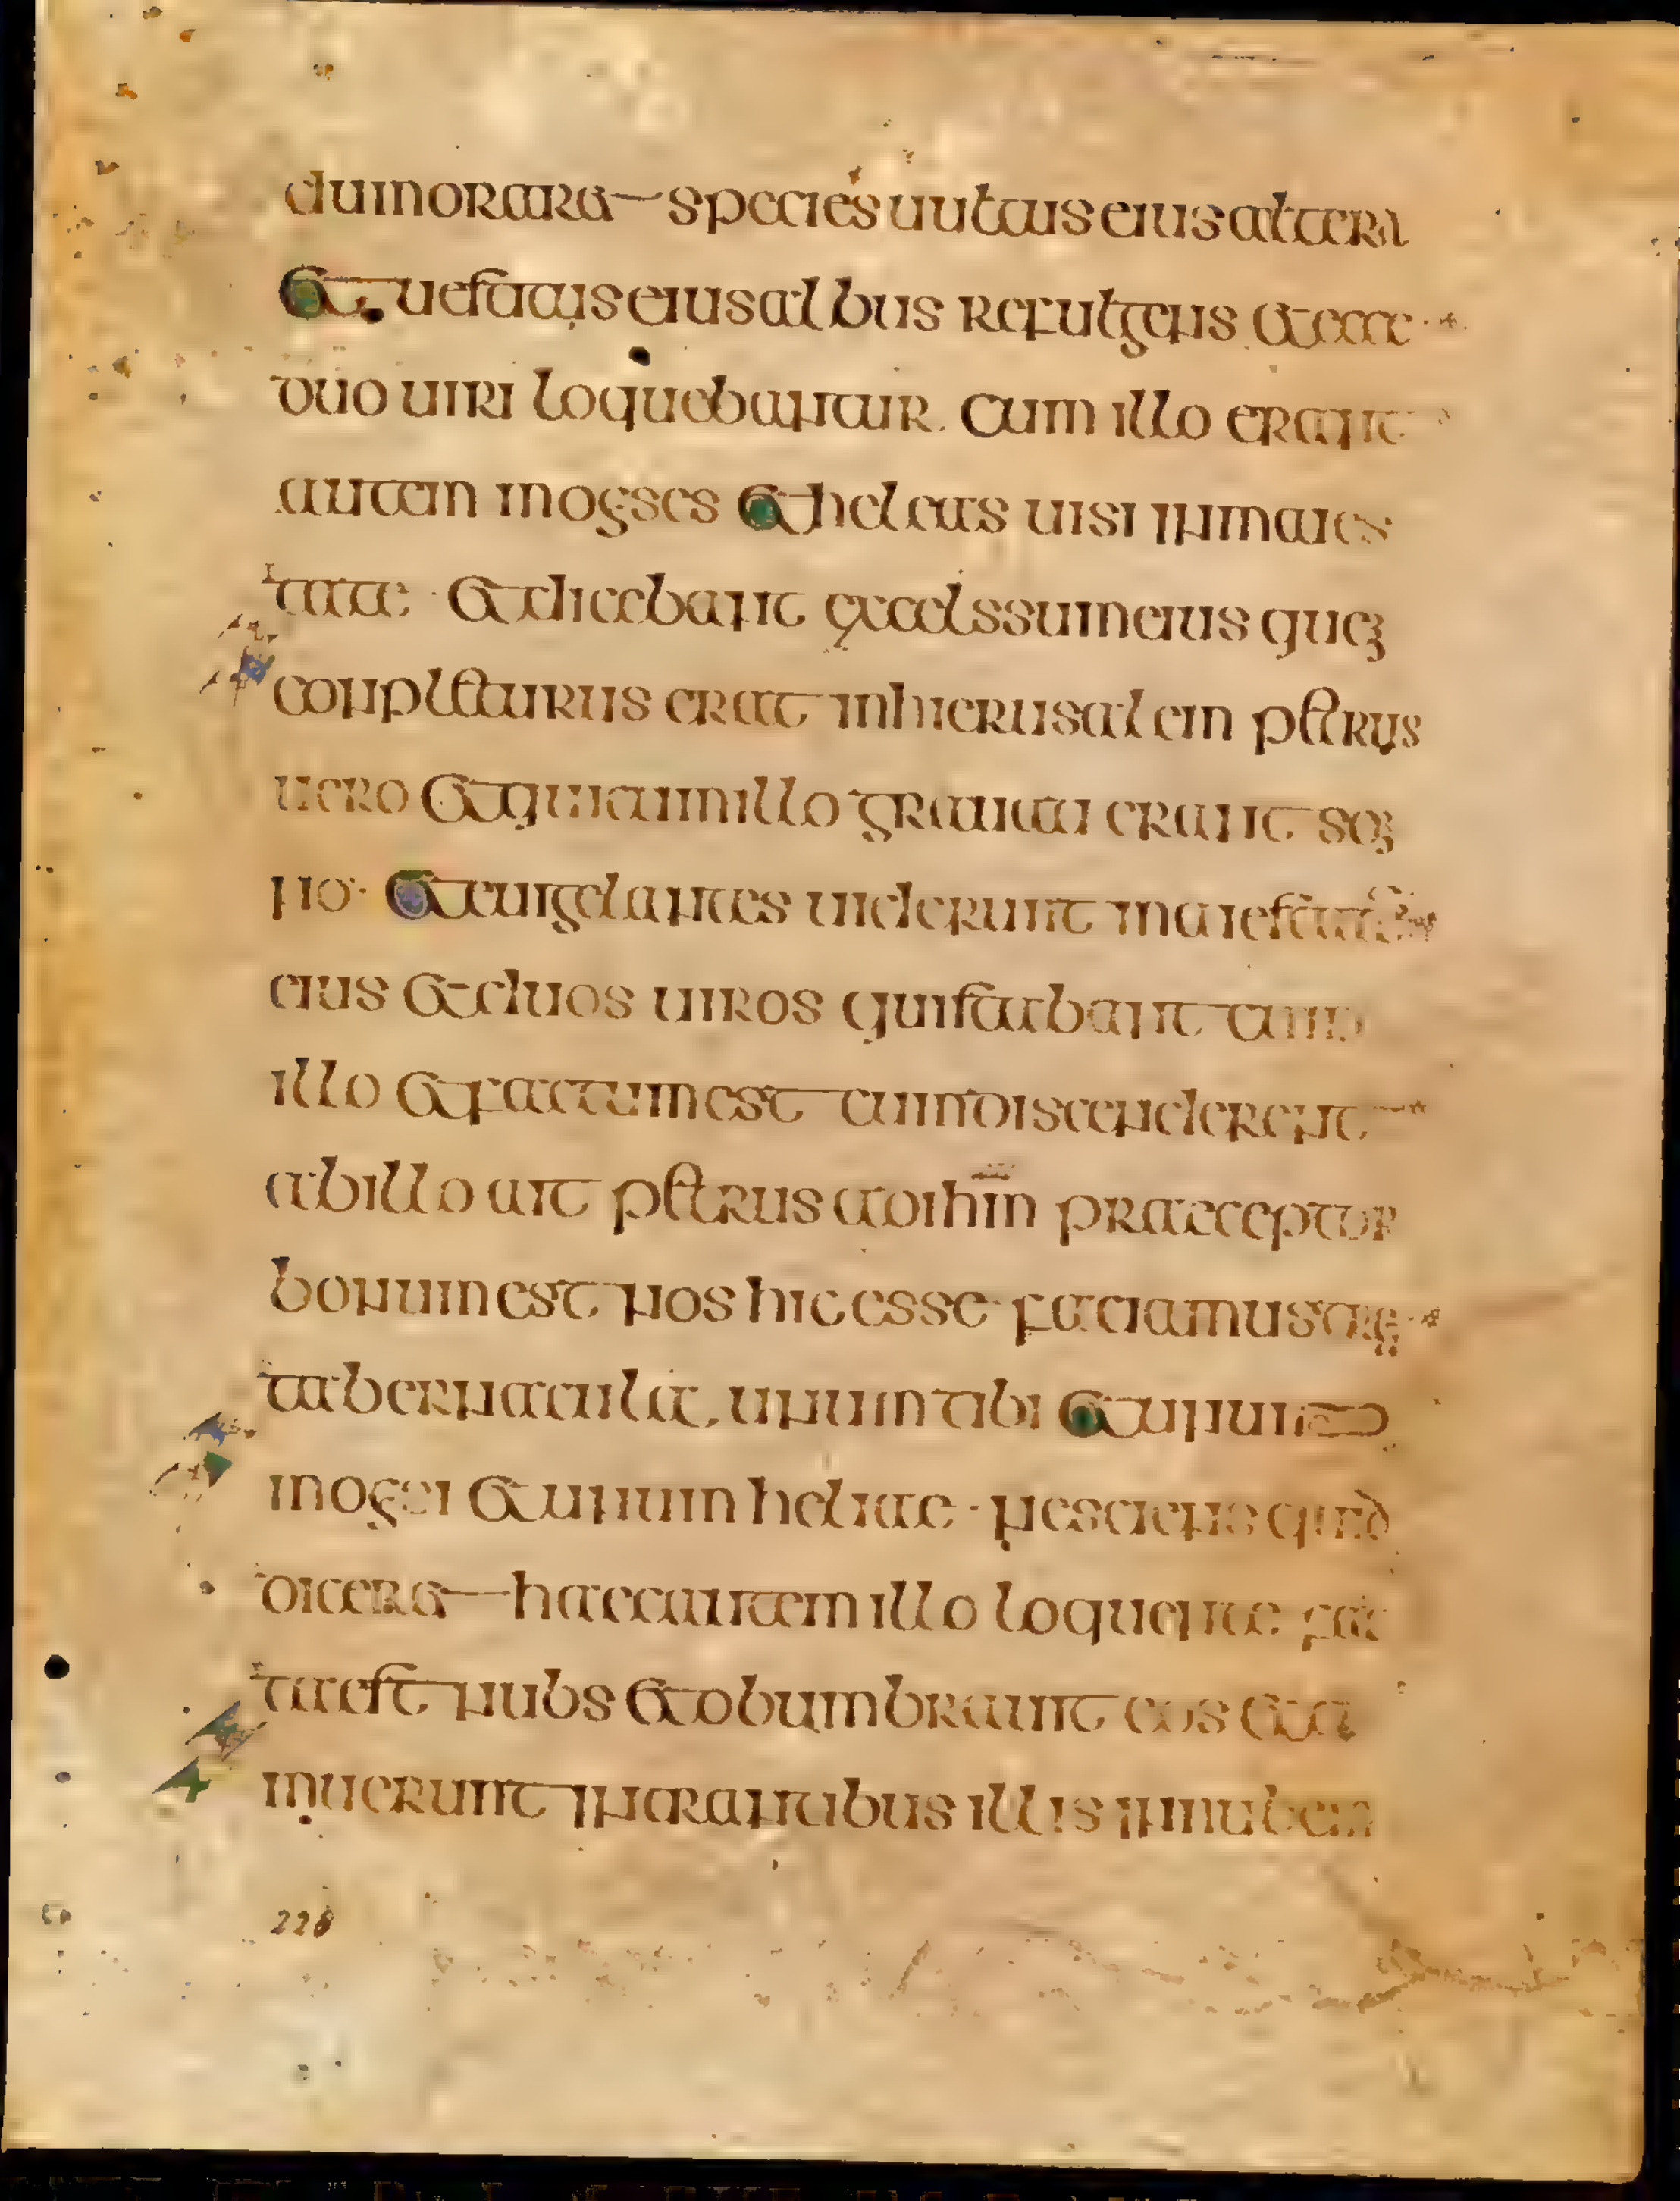 dum oraret species uultus eius altera
et uestitus eius albus refulgens et ecce
duo uiri loquebantur cum illo erant
autem moyses et helias uisi in maies
tate et dicebant excelssum eius quem
conpleturus erat in hierusalem petrus
uero et qui cum illo grauati erant som
no et euigelantes uiderunt maiestatem
eius et duos uiros qui stabant cum
illo et factum est cum discenderent
ab illo ait petrus ad ihm praeceptor
bonum est nos hic esse faciamus tria
tabernacula unum tibi et unum
moysi et unum heliae nesciens quid
diceret haec autem illo loquente fac
ta est nubs et obumbrauit eos et ti
muerunt intrantibus illis in nubem
228